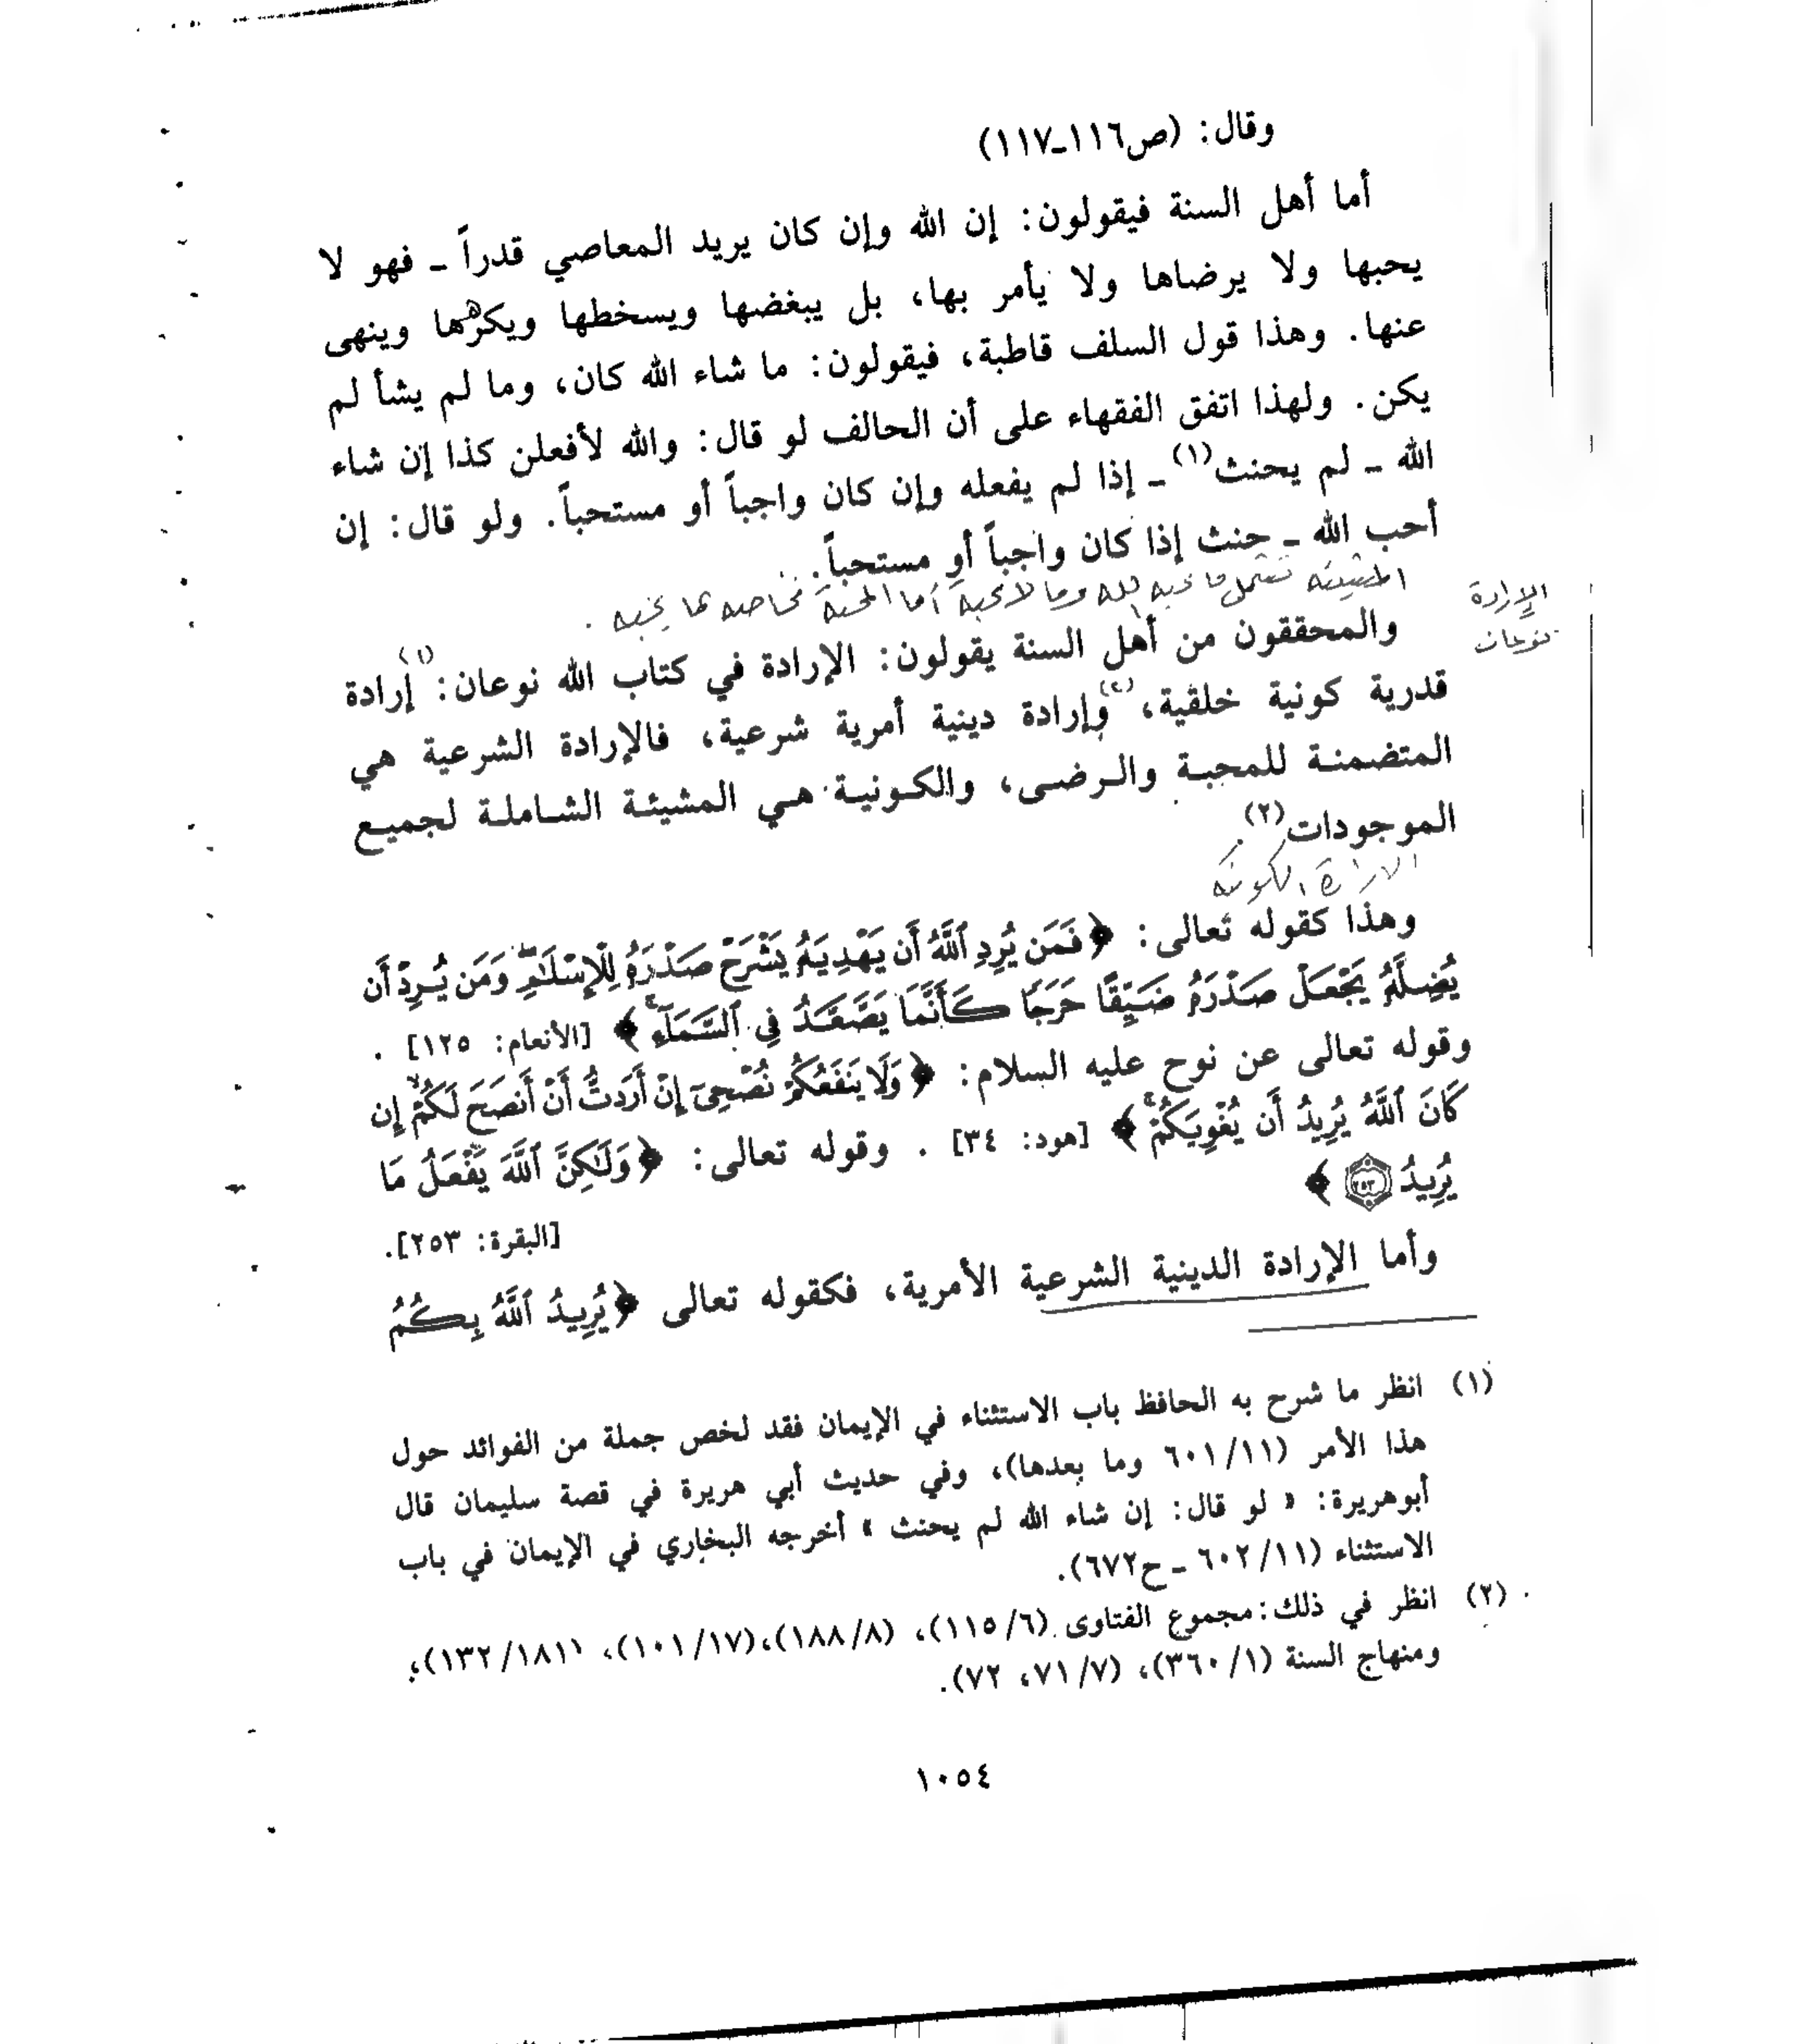 وقال: (ص١١٦-١١٧)
أما أهل السنة فيقولون: إن الله وإن كان يريد المعاصي قدراً - فهو لا
يحبها ولا يرضاها ولا يأمر بها، بل يبغضها ويسخطها ويكرهها وينهى
عنها. وهذا قول السلف قاطبة، فيقولون: ما شاء الله كان، وما لم يشأ لم
يكن. ولهذا اتفق الفقهاء على أن الحالف لو قال: والله لأفعلن كذا إن شاء
الله - لم يحنث(١) - إذا لم يفعله وإن كان واجباً أو مستحباً. ولو قال: إن
أحب الله - حنث إذا كان واجباً أو مستحباً.
المشيئة تشمل ما يحبه الله وما لا يحبه أما المحبة خاصة بما يحبه.
الإرادة
نوعان
والمحققون من أهل السنة يقولون: الإرادة في كتاب الله نوعان: (١) إرادة
قدرية كونية خلقية، (٢) وإرادة دينية أمرية شرعية، فالإرادة الشرعية هي
المتضمنة للمحبة والرضى، والكونية هي المشيئة الشاملة لجميع
الموجودات(٢).
الارادة الكونية
وهذا كقوله تعالى: ﴿فَمَن يُرِدِ ٱللَّهُ أَن يَهْدِيَهُۥ يَشْرَحْ صَدْرَهُۥ لِلْإِسْلَٰمِ ۖ وَمَن يُرِدْ أَن
يُضِلَّهُۥ يَجْعَلْ صَدْرَهُۥ ضَيِّقًا حَرَجًا كَأَنَّمَا يَصَّعَّدُ فِى ٱلسَّمَآءِ ۚ﴾ [الأنعام: ١٢٥] .
وقوله تعالى عن نوح عليه السلام: ﴿وَلَا يَنفَعُكُمْ نُصْحِىٓ إِنْ أَرَدتُّ أَنْ أَنصَحَ لَكُمْ إِن
كَانَ ٱللَّهُ يُرِيدُ أَن يُغْوِيَكُمْ ۚ﴾ [هود: ٣٤] . وقوله تعالى: ﴿وَلَٰكِنَّ ٱللَّهَ يَفْعَلُ مَا
يُرِيدُ ٢٥٣﴾
[البقرة: ٢٥٣].
وأما الإرادة الدينية الشرعية الأمرية، فكقوله تعالى ﴿يُرِيدُ ٱللَّهُ بِكُمُ
(١) انظر ما شرح به الحافظ باب الاستثناء في الإيمان فقد لخص جملة من الفوائد حول
هذا الأمر (٦٠١/١١ وما بعدها)، وفي حديث أبي هريرة في قصة سليمان قال
أبوهريرة: « لو قال: إن شاء الله لم يحنث » أخرجه البخاري في الإيمان في باب
الاستثناء (٦٠٢/١١ - ح٦٧٢).
(٢) انظر في ذلك: مجموع الفتاوى (١١٥/٦)، (١٨٨/٨)، (١٠١/١٧)، (١٣٢/١٨١)،
ومنهاج السنة (٣٦٠/١)، (٧١/٧، ٧٢).
١٠٥٤